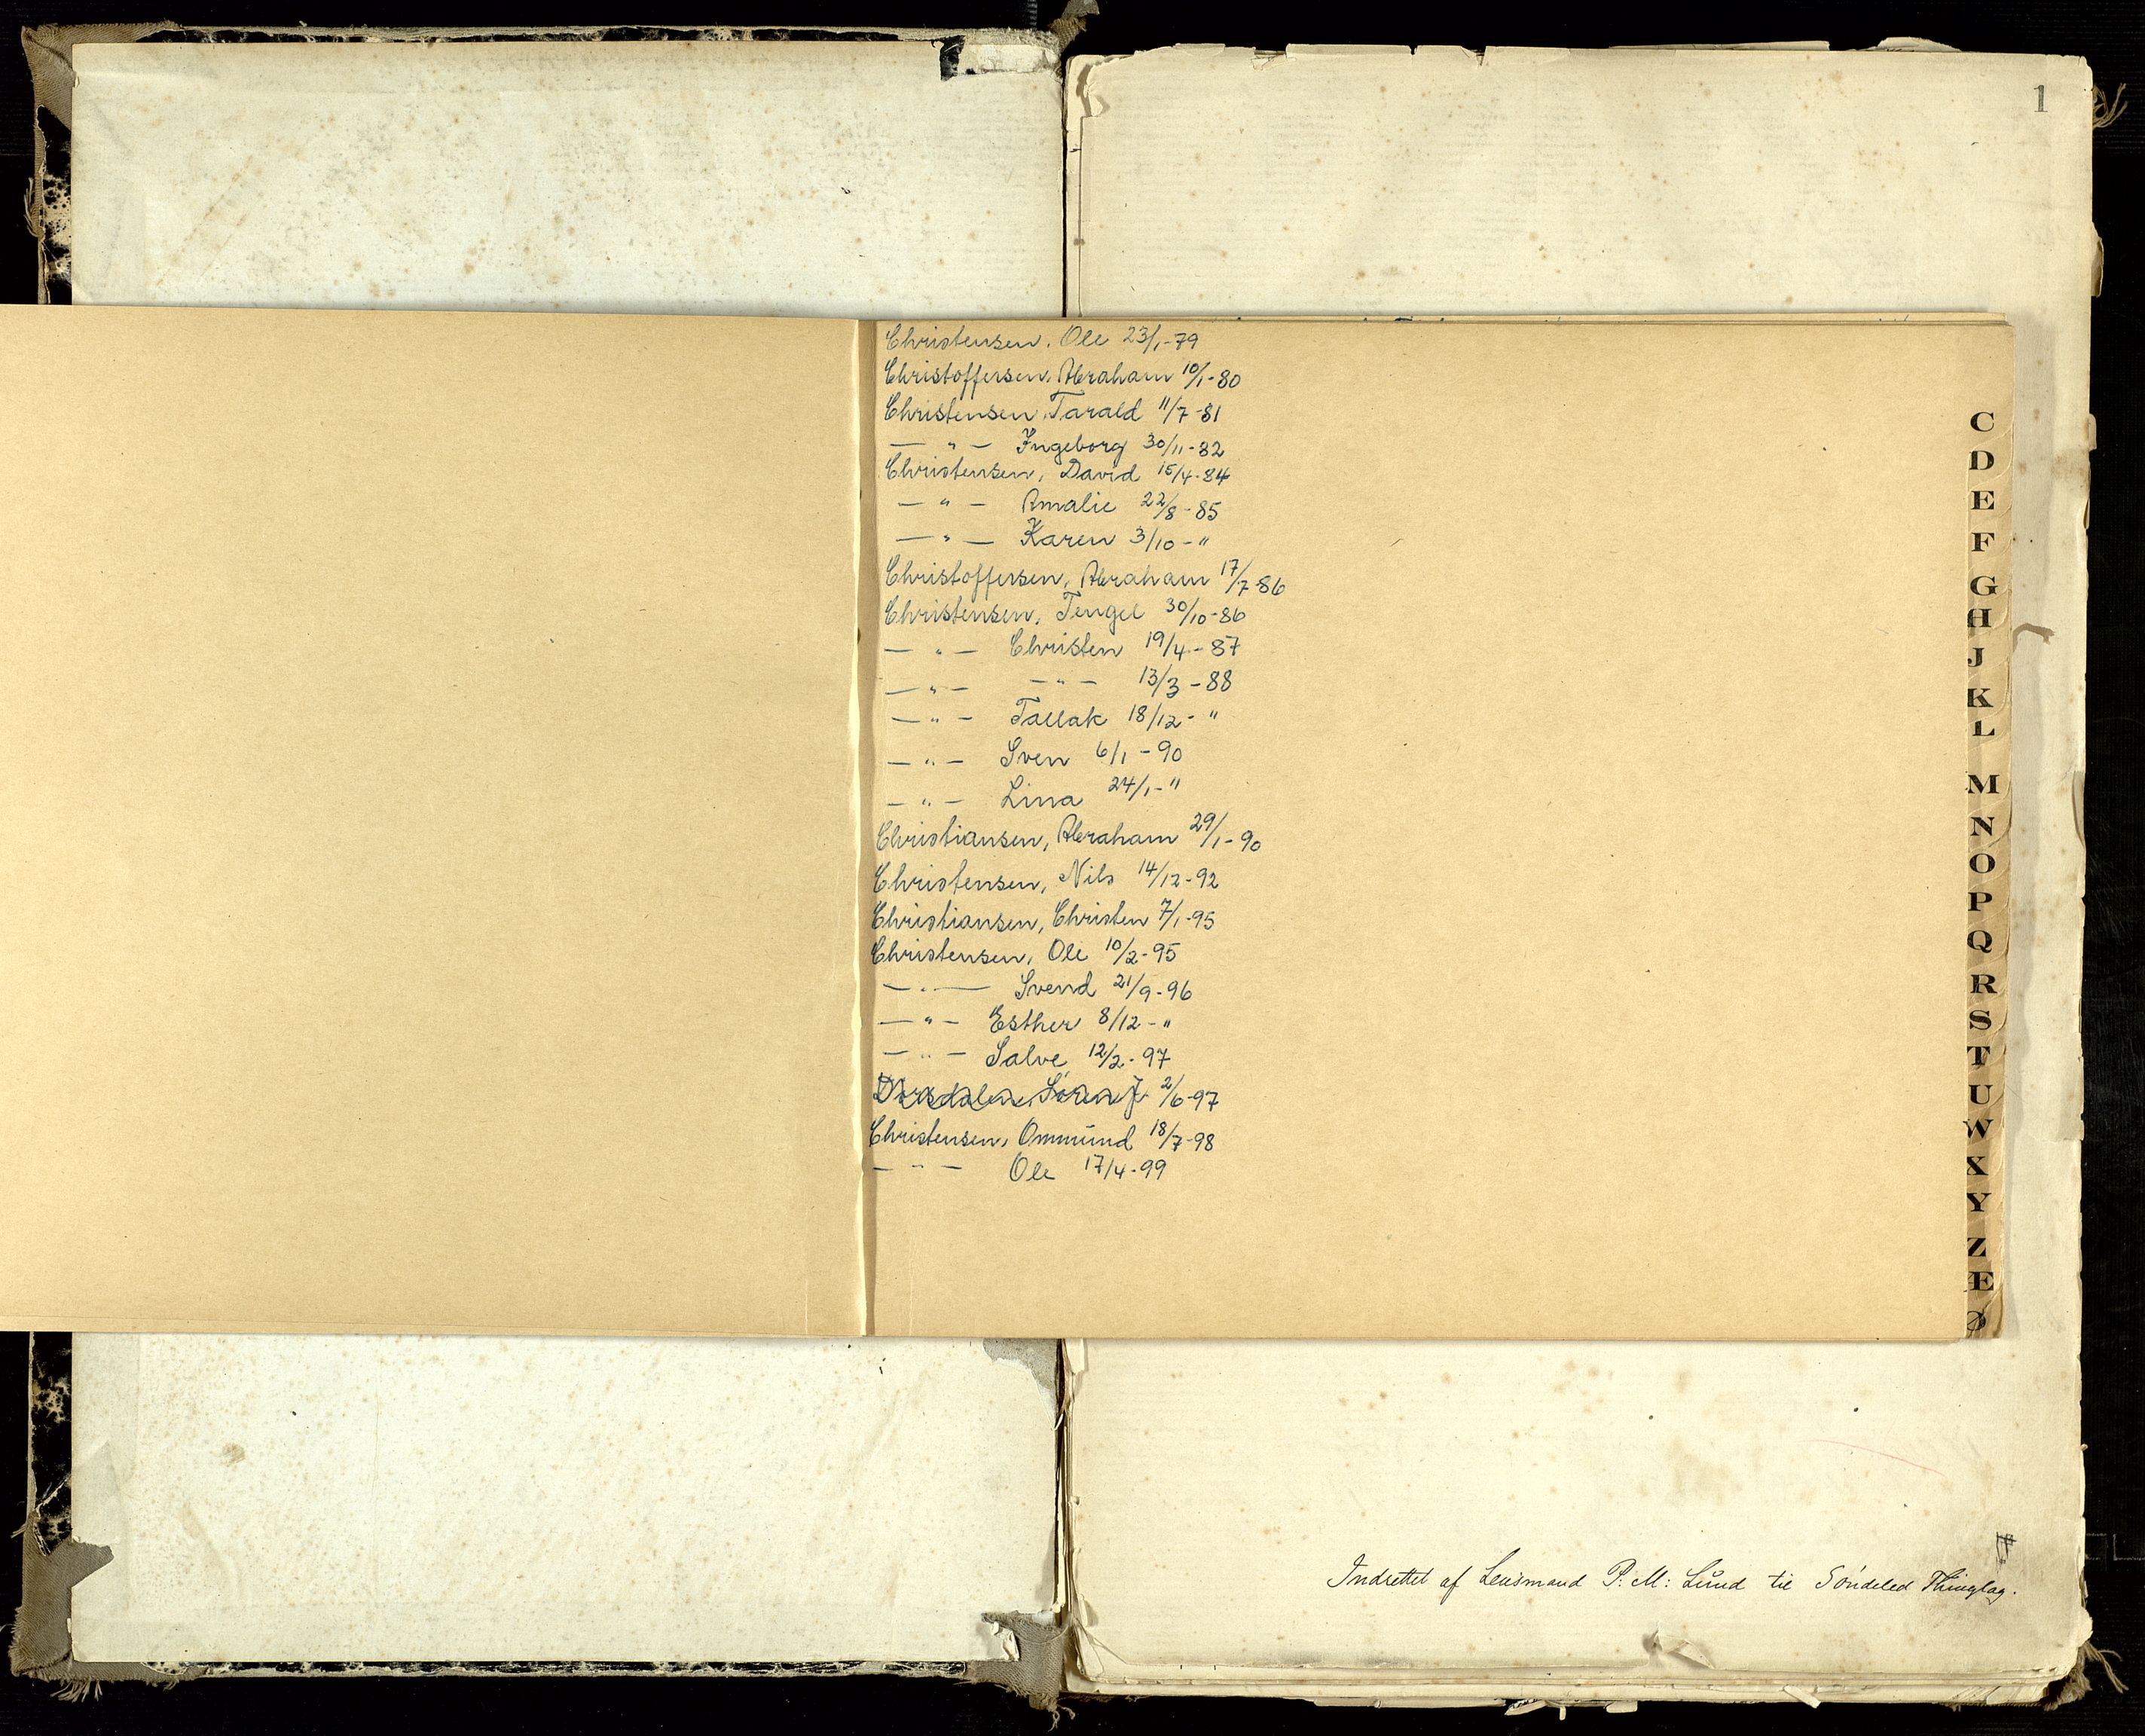 1
Christensen, Ole 23/1-79
Christoffersen, Abraham 10/1-80
Christensen, Tarald 11/7-81
— " — Ingeborg 30/11-82
Christensen, David 15/4-84
— " — Amalie 22/8-85
— " — Karen 3/10-"
Christoffersen, Abraham 17/7-86
Christensen, Tengel 30/10-86
— " — Christen 19/4-87
— " — — " — 13/3-88
— " — Tallak 18/12-"
— " — Sven 6/1-90
— " — Lina 24/1-"
Christiansen, Abraham 29/1-90
Christensen, Nils 14/12-92
Christiansen, Christen 7/1-95
Christensen, Ole 10/2-95
— " — Svend 21/9-96
— " — Esther 8/12-"
— " — Salve 12/2-97
Søren J 2/6-97
Christensen, Ommund 18/7-98
— " — Ole 17/4-99
C
D
E
F
G
H
J
K
L
M
N
O
P
Q
R
S
T
U
W
X
Y
Z
Æ
Ø
Indrettet af Lensmand P: M: Lund til Söndeled Thinglag.